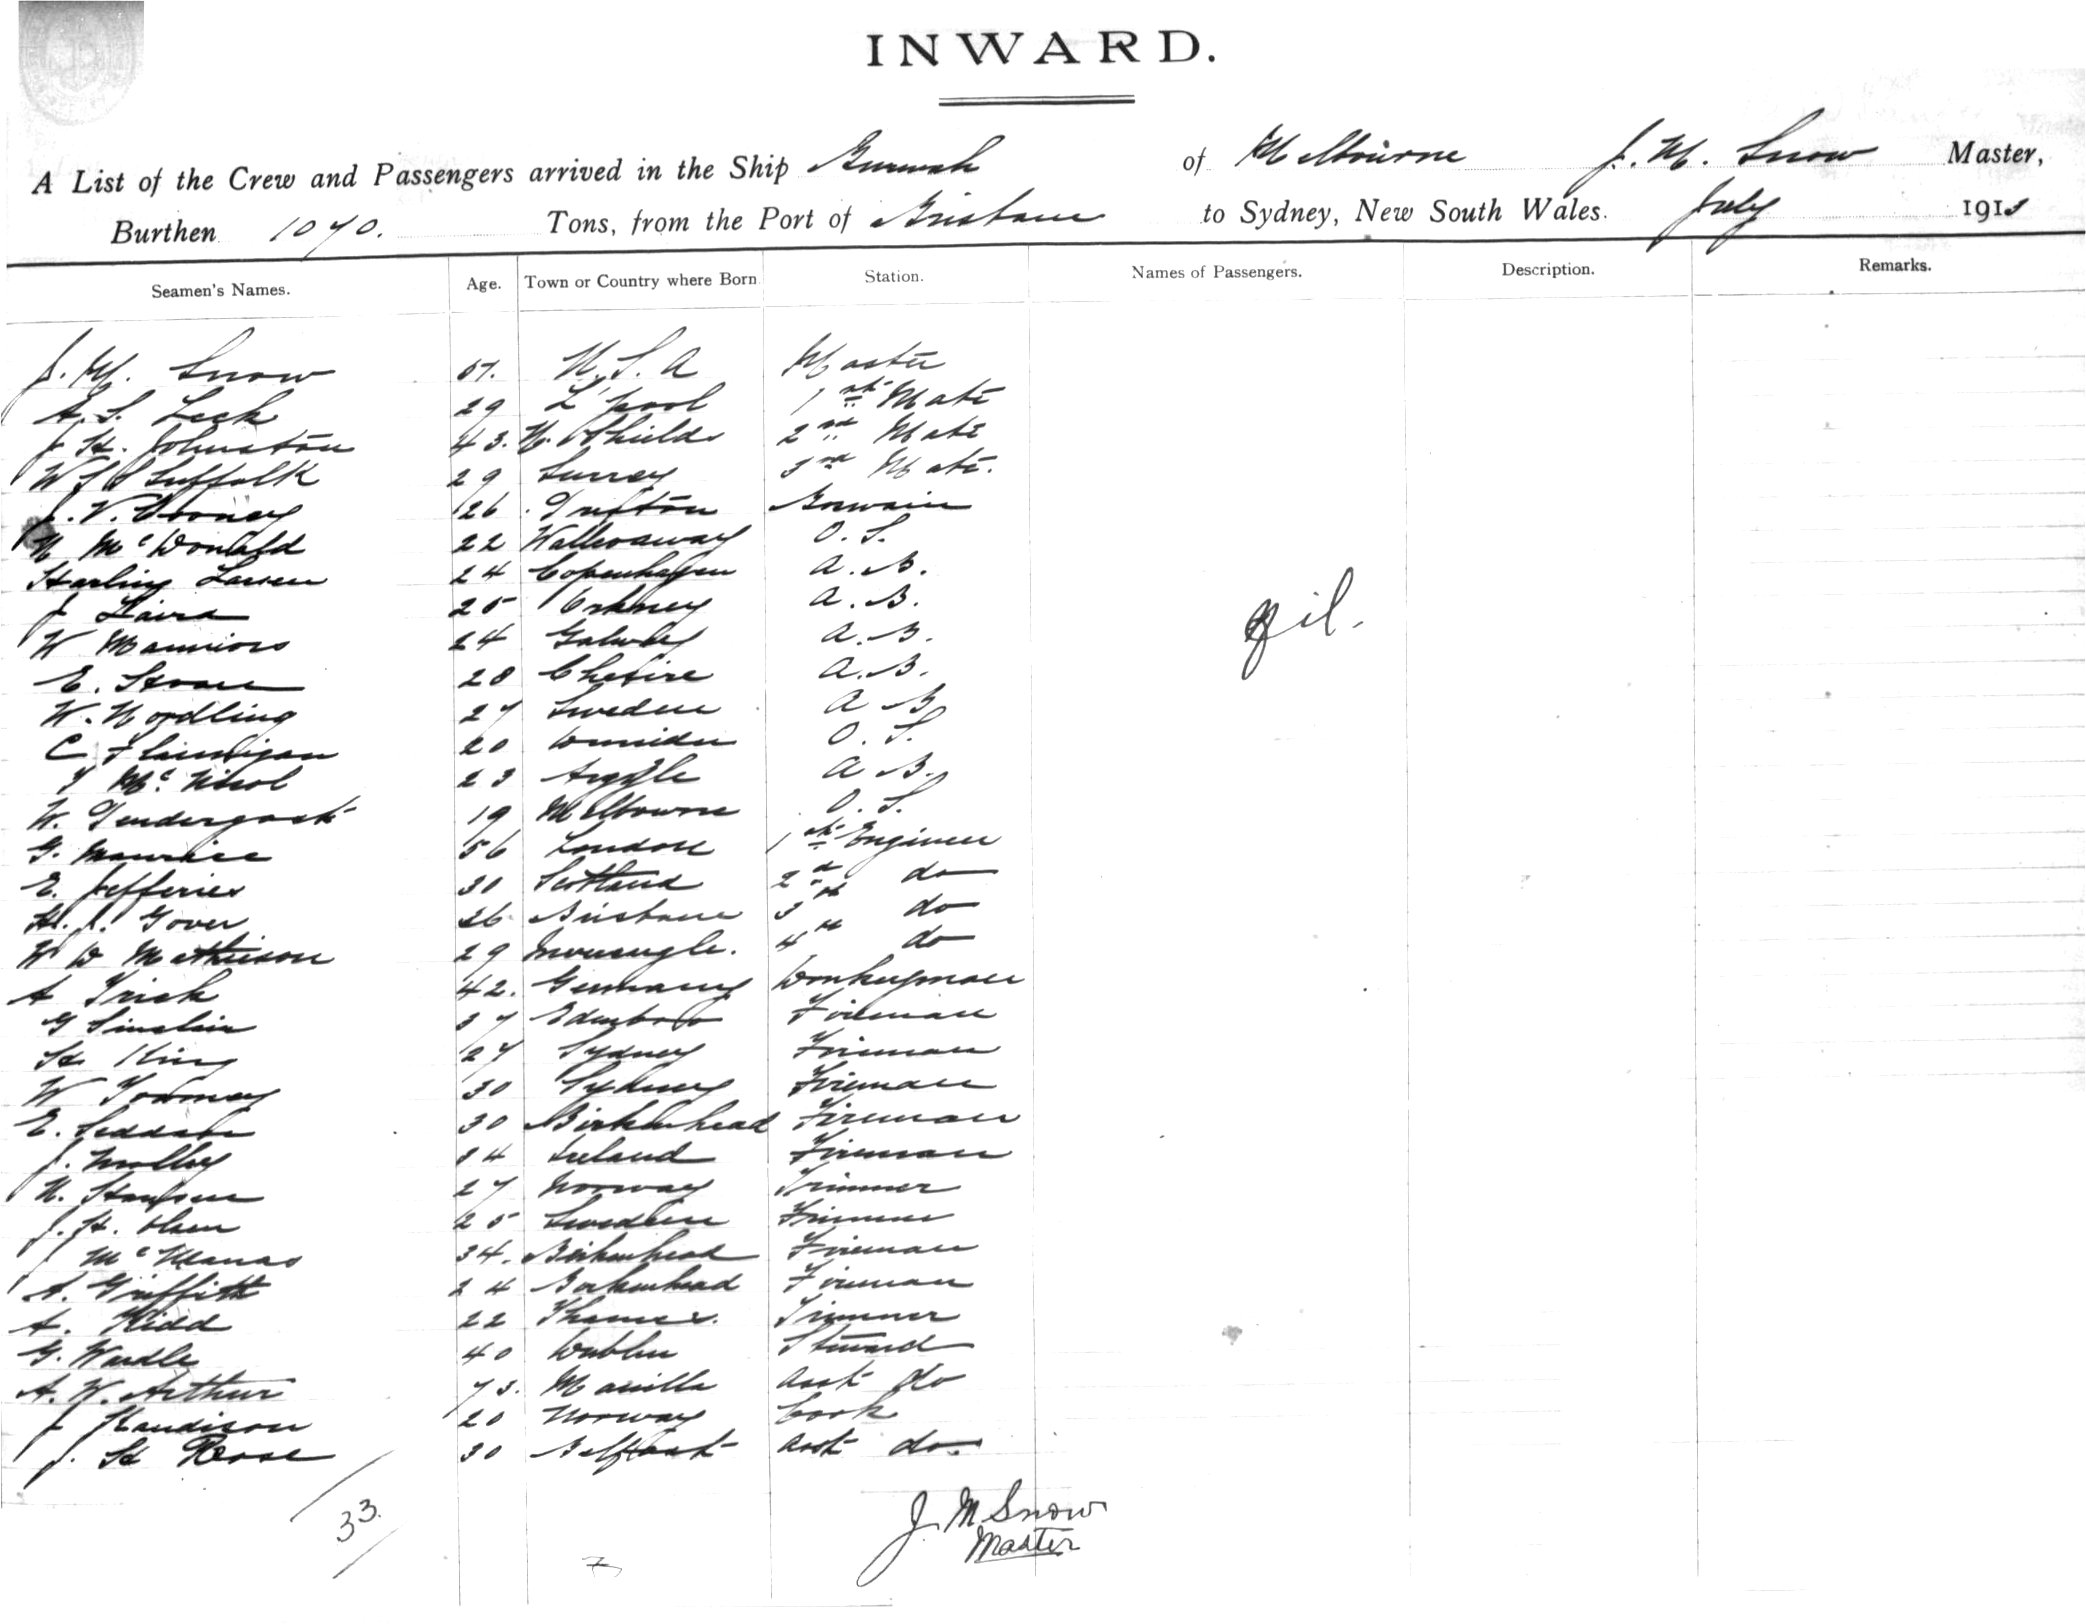 INWARD.
A List of the Crew and Passengers arrived in the Ship of Melbourne J. M. Snow Master,
Burthen 1070. Tons, from the Port of Brisbane to Sydney, New South Wales. July 191
Seamen's Names. Age. Town or Country where Born Station. Names of Passengers. Description. Remarks.
J. M. Snow 57. U.S.A Master
A. S. Leck 29 L'pool 1st Mate
J H. Johnston 43. N. Shields 2nd Mate
W S S Suffolk 29 Surrey 3rd Mate.
J. V. 26
N McDonald 22 O.S.
Larsen 24 Copenhagen A.B.
J Laird 25 Orkney A.B.
W 24 Galway A.B.
E. 28 Chesire A.B.
W. Nordling 27 Sweden A B
C Flannigan 20 Dunedin O.S.
McNicol 23 Argyle A B.
W. 19 Melbourne O.S.
G. Maurice 56 London 1st Engineer
E. Jefferies 30 Scotland 2nd do
H. J. Gover 26 Brisbane 3rd do
W D Mathieson 29 4th do
A 42. Germany Donkeyman
G Sinclair 37 Fireman
H King 27 Sydney Fireman
W 30 Sydney Fireman
E. Seddon 30 Birkenhead Fireman
J. Molloy 34 Ireland Fireman
N. Hansen 27 Norway Trimmer
J. H. Olsen 25 Sweden Trimmer
McManas 34. Birkenhead Fireman
A. Griffith 24 Birkenhead Fireman
A. Kidd 22 Thames. Trimmer
G. Wardle 40 Dublin Steward
A. W. Arthur 73. Manilla Asst do
J 20 Norway Cook
J. H Rose 30 Belfast Asst do.
Nil.
33.
J. M Snow
Master